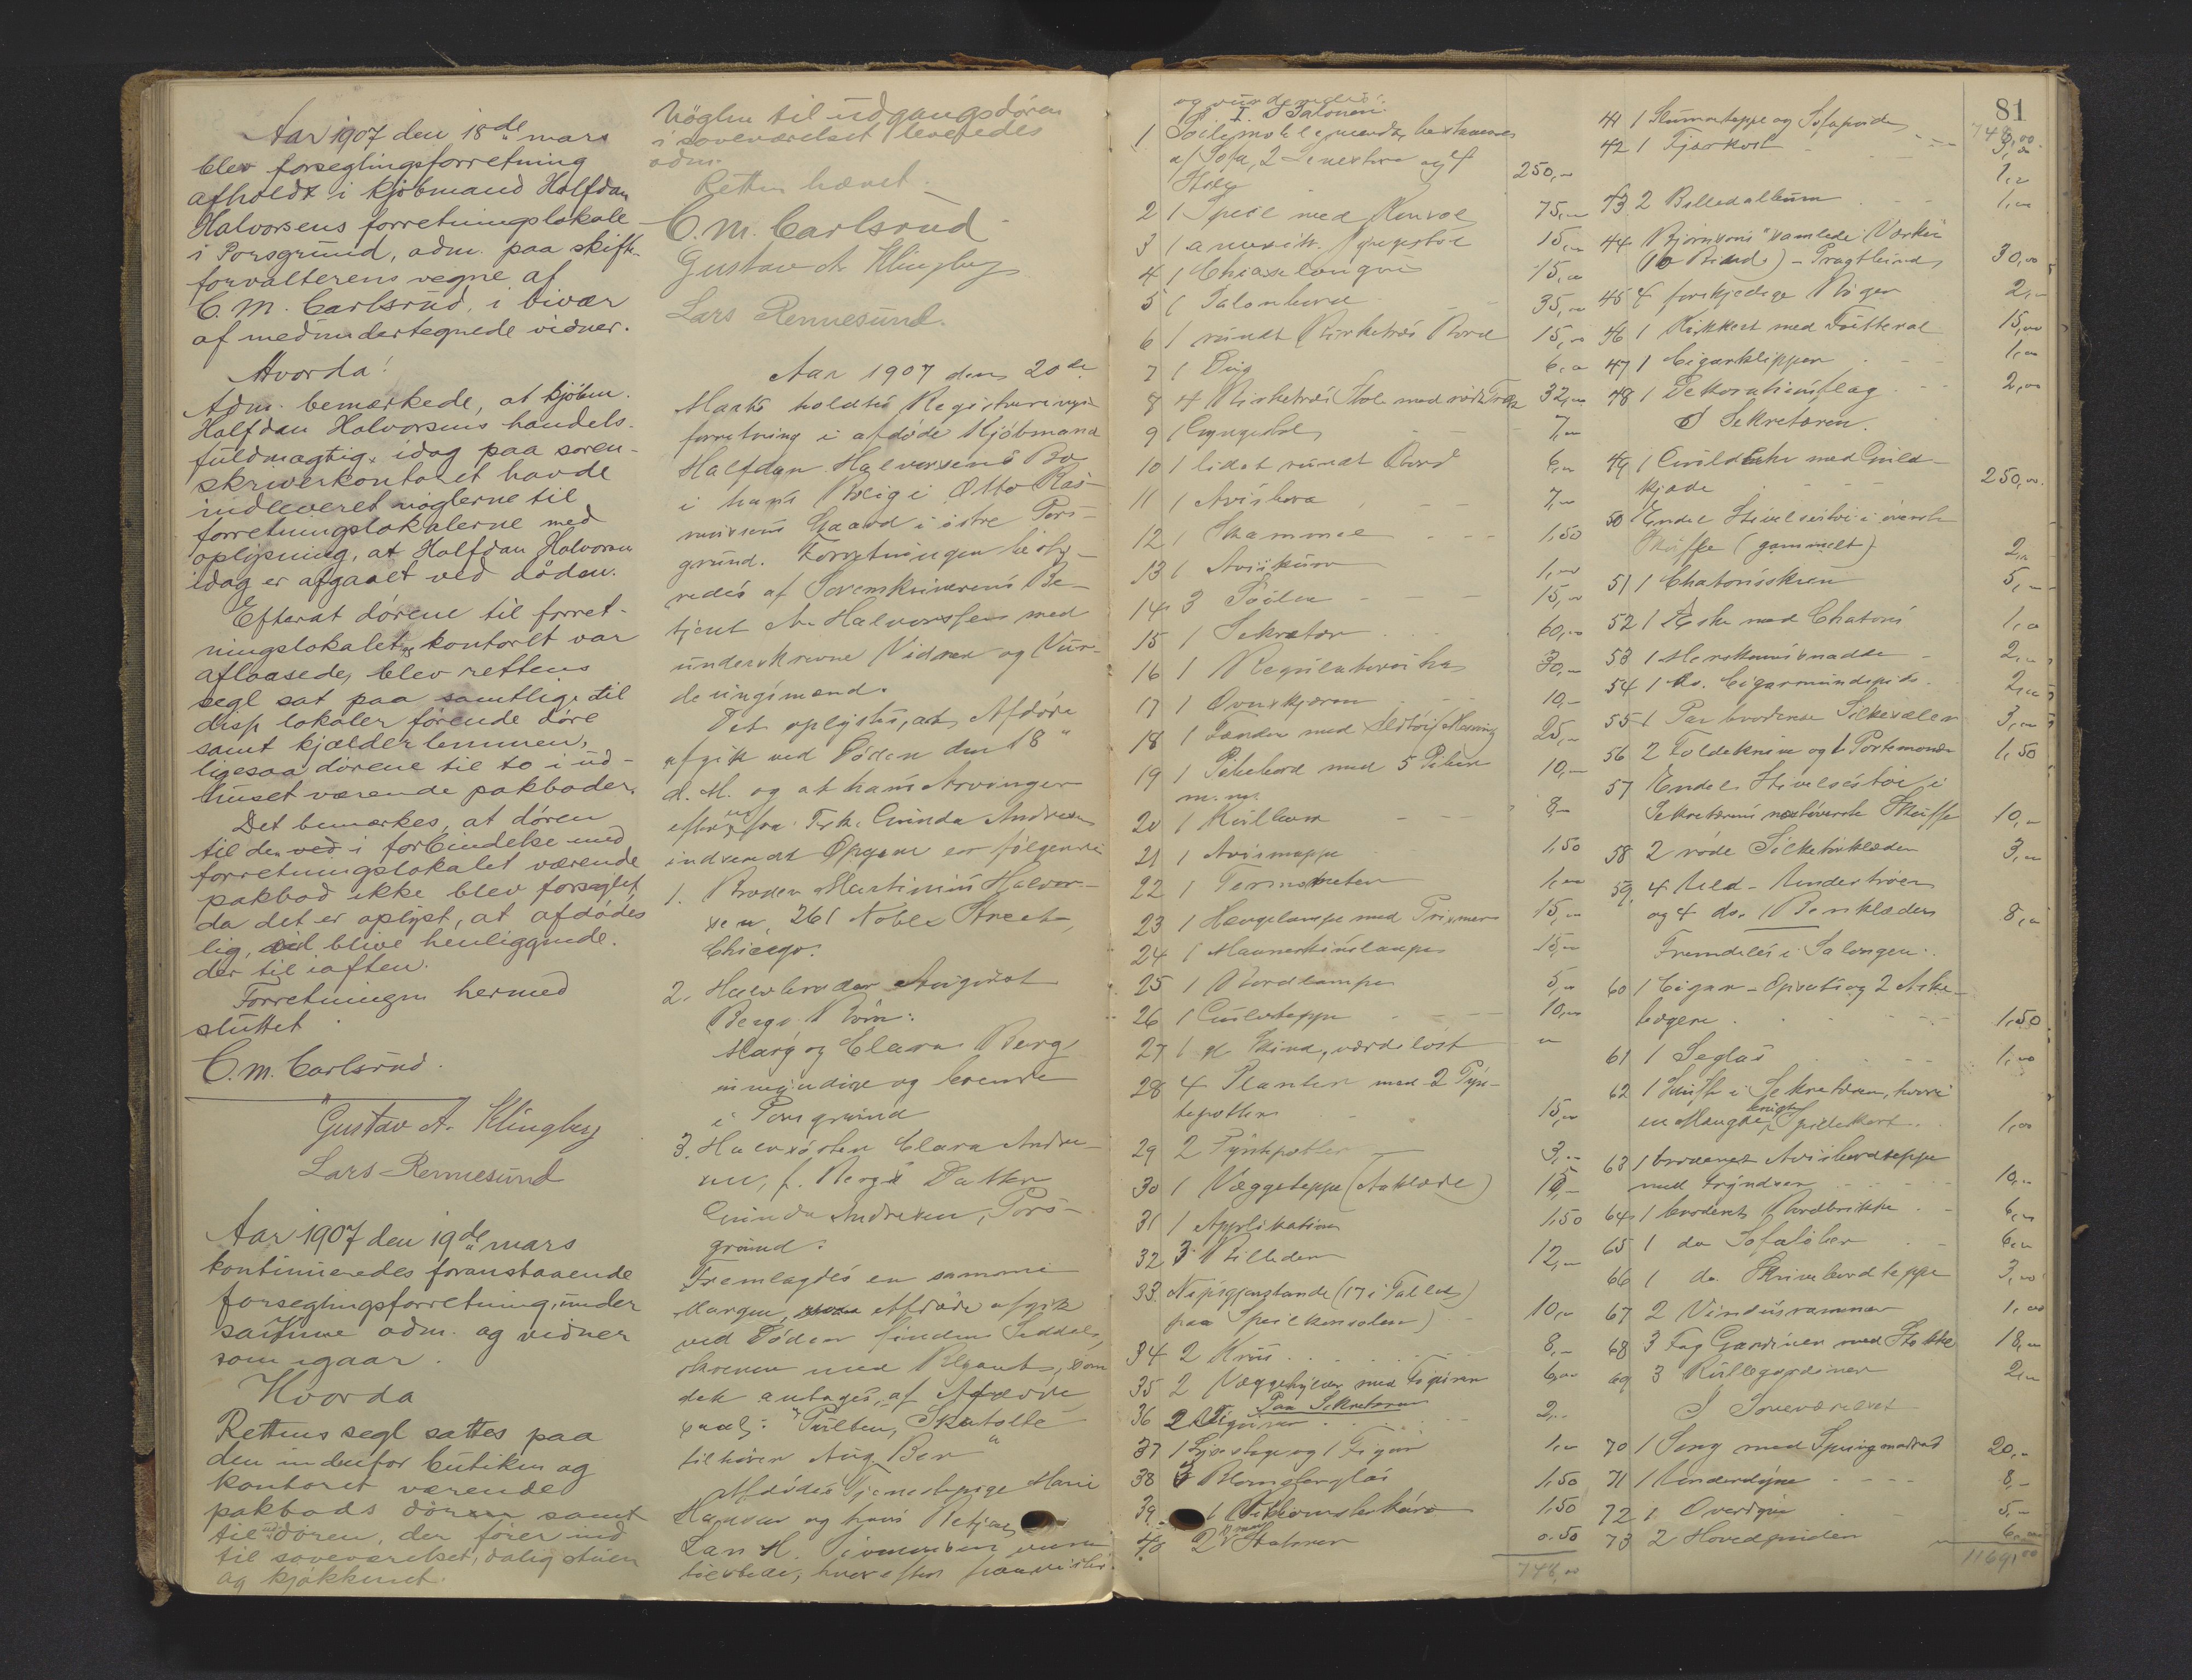 Aar 1907 den 18de mars
blev forseglingsforretning
afholdt i kjøbmand Halfdan
Halvorsens forretningslokale
i Porsgrund, adm. paa skifte-
forvalterens vegne af
C. M. Carlsrud, i bivær
af medundertegnede vidner.
Hvorda!
Adm. bemærkede, at kjøbm.
Halfdan Halvorsens handels-
fuldmægtig, idag paa soren-
skriverkontoret havde
indleveret nøglerne til
forretningslokalerne med
oplysning, at Halfdan Halvorsen
idag er afgaaet ved døden.
Efterat dørene til forret-
ningslokalet og kontoret var
aflaasede, blev rettens
segl sat paa samtlige til
disse lokaler førende døre
samt kjælderlemmen,
ligesaa dørene til to i ud-
huset værende pakboder.
Det bemærkes, at døren
til den ved i forbindelse med
forretningslokalet værende
pakbod ikke blev forseglet,
da det er oplyst, at afdødes
lig, vil blive henliggende
der til iaften.
Forretningen hermed
sluttet.
C. M. Carlsrud.
Gustav A. Klingberg
Lars Rennesund
Aar 1907 den 19de mars
kontinueredes foranstaaende
forseglingsforretning, under
samme adm. og vidner
som igaar.
Hvorda
Rettens segl sattes paa
den indenfor butiken og
kontoret værende
pakbods døren samt
til døren, der fører ind
til soveværelset, dalig stuen
og kjøkkenet.
Nøglen til udgangsdøren
i soveværelset leveredes
adm.
Retten hævet.
C. M. Carlsrud
Gustav A Klingberg
Lars Rennesund.
Aar 1907 den 20de
Marts holdtes Registrerings-
forretning i afdøde Kjøbmand
Halfdan Halvorsens Bo
i hans Bolig i Otto Ras-
mussens Gaard i østre Pors-
grund. Forretningen besty-
redes af Sorenskriverens Be-
tjent A. Halvorssen med
underskrevne Vidner og Vur-
deringsmænd.
Det oplystes, at Afdøde
afgik ved Døden den 18"
d. M. og at hans Arvinger
efter en fra Frk. Gunda Andresen
indsendt Opgave er følgende
1. Broder Martinius Halvor-
sen, 261 Noble Street,
Chicago.
2. Halvbroder August
Bergs Børn:
Marg og Clara Berg
umyndige og boende
i Porsgrund
3. Halvsøster Clara Andre-
sen, f. Bergs Datter
Gunda Andresen, Pors-
grund.
Fremlagdes en samme
Morgen, Afdøde afgik
ved Døden funden Seddel,
skreven med Blyant, som
det antages, af Afdøde
saal: "Pulten, Skatolle
tilhører Aug. Ber"
Afdødes Tjenestepige Marie
Hansen og hans Betjent
Lars H.
tilstede, hvorefter fremvistes
og vurderedes:
I. I Salonen
1 1 Salonmøblement, bestaaende
af Sofa, 2 Lenestole og 4
Stole 250,-
2 1 Speil med Konsol 75,-
3 1 amerik. Gyngestol 15,-
4 1 Chaiselongue 15,-
5 1 Salonbord 35,-
6 1 rundt Birketræs Bord 15,-
7 1 Puf 6,-
8 4 Birketræs Stole med rødt Træk 32,-
9 1 Gyngestol 7,-
10 1 lidet rundt Bord 6,-
11 1 Avisbord 7,-
12 1 Skammel 1,50
13 1 Aviskurv 1,00
14 3 Søiler 15,00
15 1 Sekretær 60,00
16 1 Regulatorur 30,-
17 1 Ovnskjærm 10,-
18 1 Fender med Ildtøi Messing 25,-
19 1 Pibebord med 5 Piber
m.m. 10,-
20 1 8,-
21 1 Avismappe 1,50
22 1 Termometer 1,00
23 1 Hængelampe med Prismer 15,-
24 1 lampe 15,-
25 1 Bordlampe 5,-
26 1 Gulvteppe 10,00
27 1 gl. Skind, værdiløst "
28 4 Planter med 2 Pyn-
tepotter 15,00
29 2 Pyntepotter 3,-
30 1 Væggeteppe (Aaklæde)
31 1 Applikation 1,50
32 3 Billeder 12,-
33. Nipsgjenstande (17 i Tallet)
paa Speilkonsolen) 10,-
34 2 Krus 8,-
35 2 Væggehylder med Figurer 6,00
Paa Sekretæren
36 2 Figurer 2,-
37 1 Lysestage og 1 Figur 1,-
38 3 Blomsterglas 1,50
39. 1 1,50
40 2 Stohner 0.50
748,00
81
748,00
41 1 Slumreteppe og Sofapude 3,00
42 1 Fjærkost 1,-
43 2 Billedalbum 1,00
44 Bjørnsons "samlede Værker
(10 Bind) - Pragtbind 30,00
45 4 forskjellige Bøger 2,-
46 1 Kikkert med Foutteral 15,00
47 1 Cigarklipper 1,00
48 1 Dekorationsflag 2,00
I Sekretæren.
49 1 Gulduhr med Guld-
kjæde 250,00.
50 Endel Stivelsestøi i øverste
Skuffe (gammelt) 2,-
51 1 Chatonsskrin 5,-
52 1 Æske med Chatons 1,00
53 1 Merskumssnadde 2,-
54 1 do. Cigarmundspids 2,00
55 1 Par broderte Silkeseler 3,-
56 2 Foldeknive og 1 Portemonæ 1,50
57 Endel Stivelsestøi i
Sekretærens næstøverste Skuffe 10,-
58 2 røde Silketørklæder 3,00
59. 4 Uld-Undertrøier
og 4 do. Benklæder 8,00
Fremdeles i Salongen:
60 1 Cigar-Opsats og 2 Aske-
bægere 1,50
61 1 Seglas 1,00
62 1 Skuffe i Sekretæren, hvori
en Mængde brugte Spillekort 1,00
63 1 broderet Avisbordteppe
med Frynser 10,-
64 1 broderet Bordbrikke 6,00
65 1 do Sofaløber 6,00
66 1 do. Skrivebordteppe 3,00
67 2 Vindusrammer 1,00
68 3 Fag Gardiner med Stokke 18,00
69 3 Rullegardiner 2,00
I Soveværelset
70 1 Seng med Springmadrad 20,-
71 1 Underdyne 8,-
72 1 Overdyne 5,-
73 2 Hovedpuder 6,00
1169,00